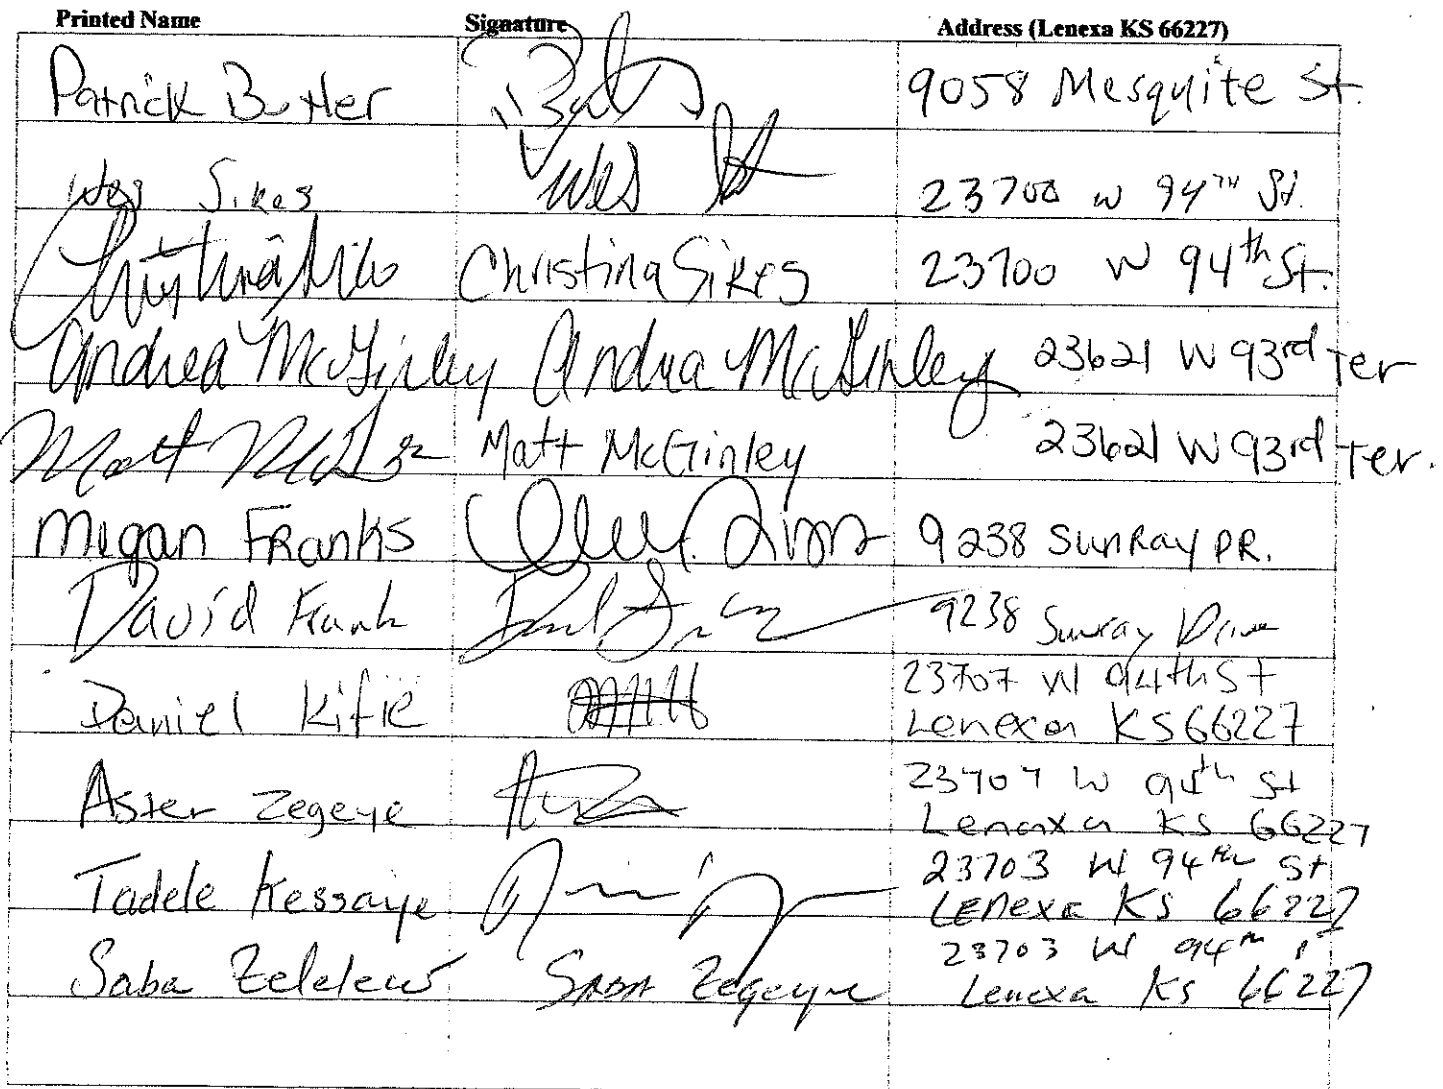 Printed Name Signature Address (Lenexa KS 66227)
Patrick Butler 9058 Mesquite St.
Wes Sikes Wes 23700 W 94TH St.
Christina Sikes Christina Sikes 23700 W 94th St.
Andrea McGinley Andrea McGinley 23621 W 93rd Ter
Matt Matt McGinley 23621 W 93rd Ter.
Megan Franks 9238 Sunray DR.
David Frank 9238 Sunray Drive
Daniel Kifle 23707 W 94th St
Lenexa KS 66227
Aster Zegeye 23707 W 94th St
Lenexa KS 66227
Tadele Kessaye 23703 W 94th St
Lenexa KS 66227
Saba Zelelew Saba Zegeye 23703 W 94th St
Lenexa KS 66227